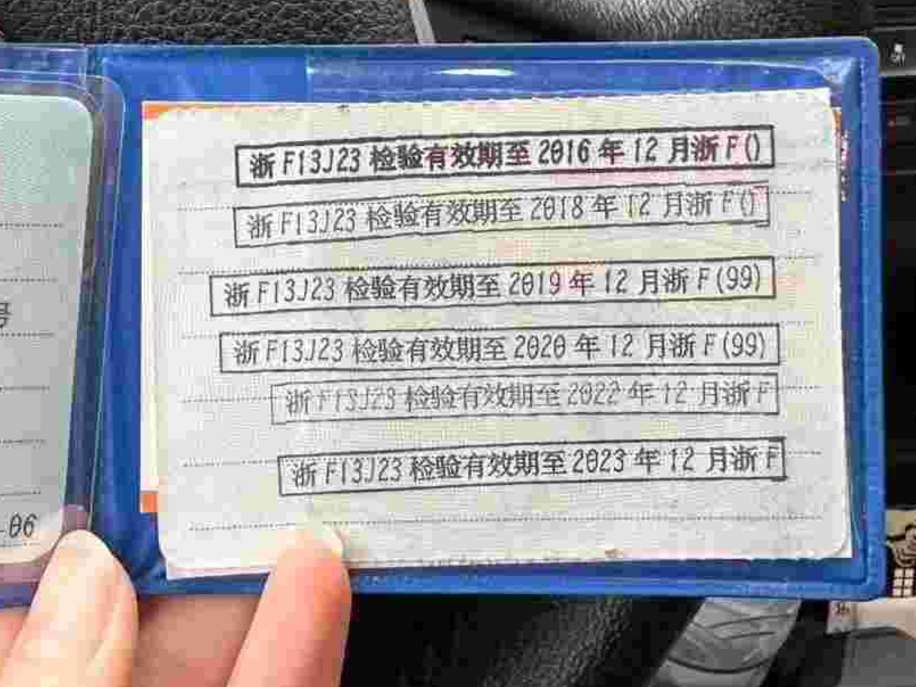 浙F13J23检验有效期至2016年12月浙F()
浙F13J23检验有效期至2018年12月浙F()
浙F13J23检验有效期至2019年12月浙F(99)
浙F13J23检验有效期至2020年12月浙F(99)
浙F13J23检验有效期至2022年12月浙F
浙F13J23检验有效期至2023年12月浙F
号
-06